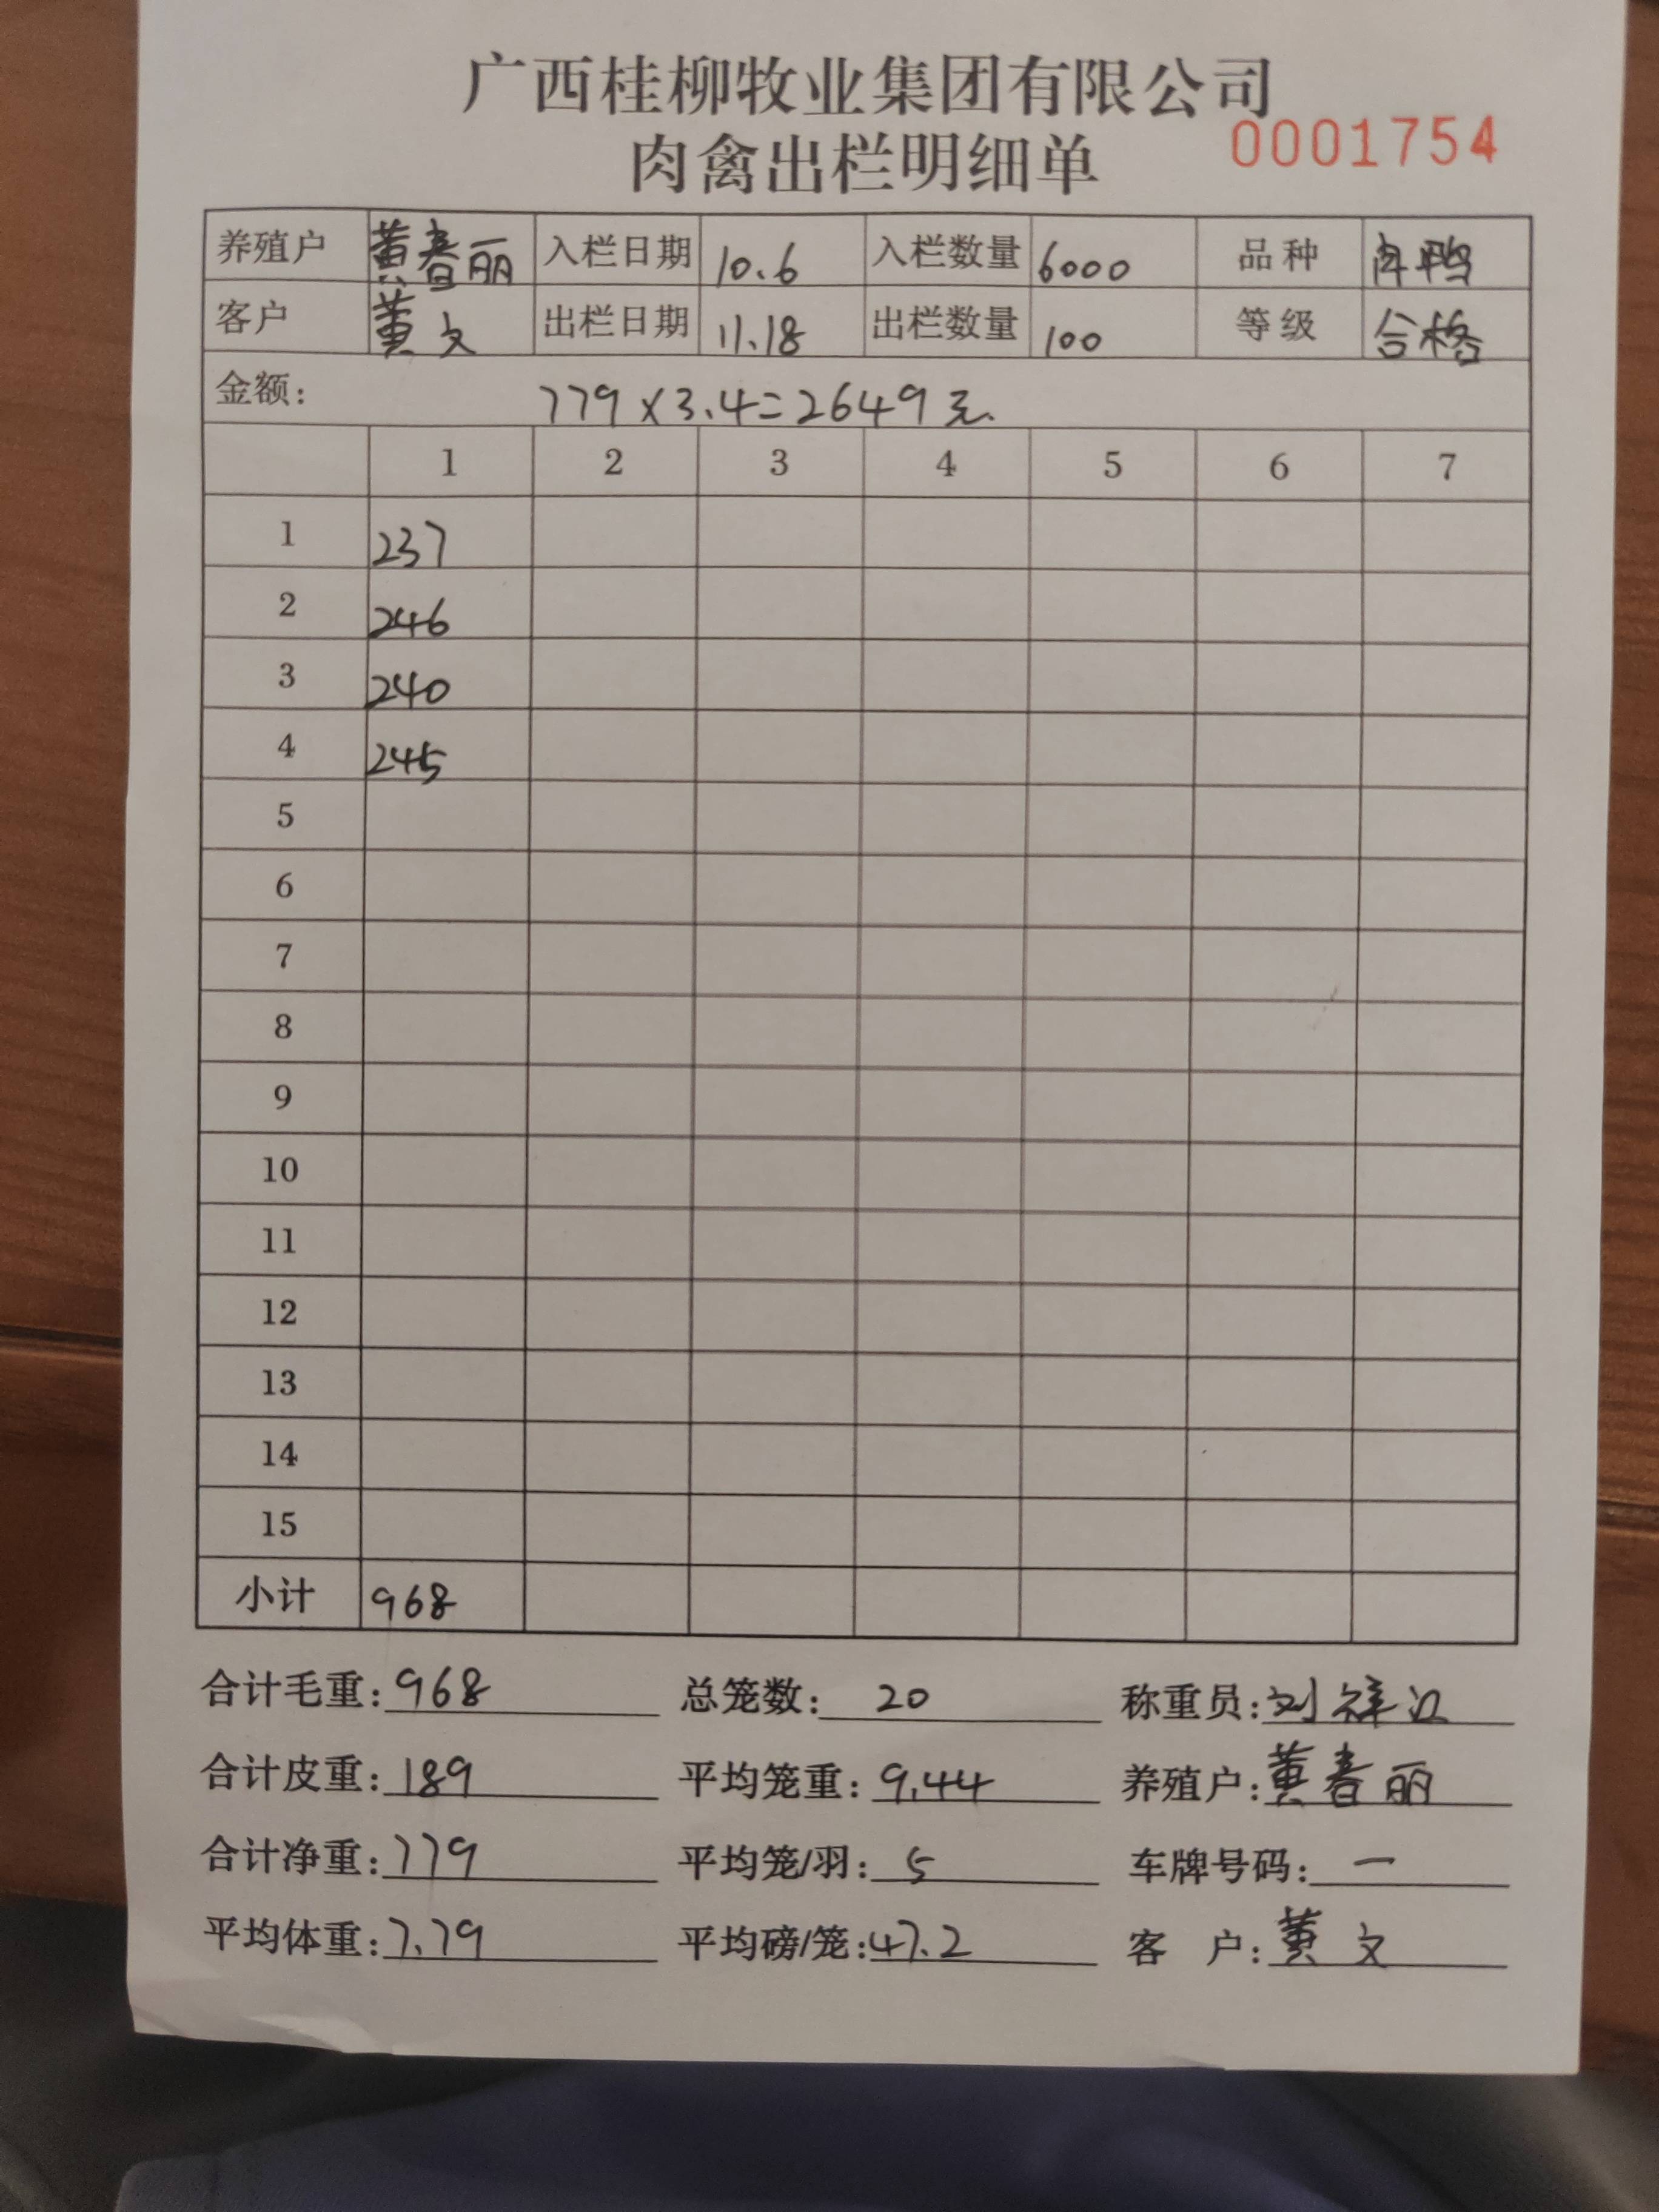 广西桂柳牧业集团有限公司
肉禽出栏明细单 0001754
养殖户 黄春丽 入栏日期 10.6 入栏数量 6000 品种 肉鸭
客户 黄文 出栏日期 11.18 出栏数量 100 等级 合格
金额: 779×3.4=2649元.
1 2 3 4 5 6 7
1 237
2 246
3 240
4 245
5
6
7
8
9
10
11
12
13
14
15
小计 968
合计毛重:968 总笼数: 20 称重员:刘祥汉
合计皮重:189 平均笼重:9.44 养殖户:黄春丽
合计净重:779 平均笼/羽: 5 车牌号码: 一
平均体重:7.79 平均磅/笼:47.2 客 户:黄文